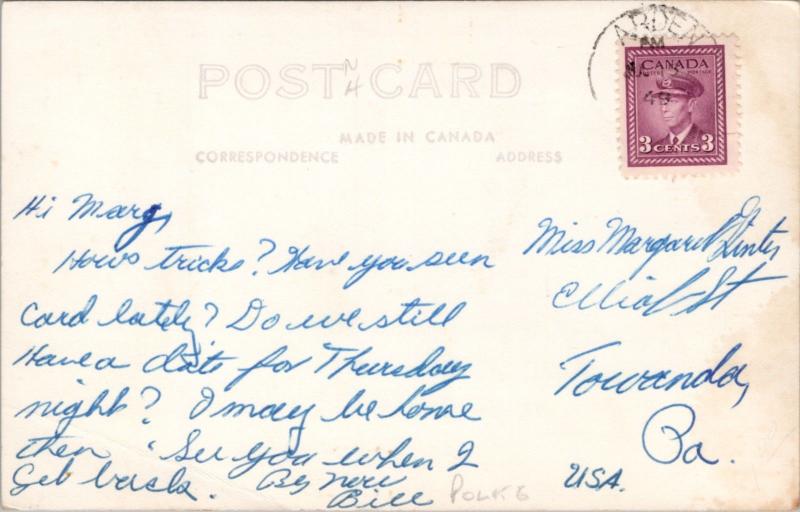 ARDEN
AM
49
CANADA
POSTES POSTAGE
3 CENTS 3
POST CARD
N
H
MADE IN CANADA
CORRESPONDENCE ADDRESS
Hi Marg,
Hows tricks? Have you seen
Card lately? Do we still
Have a date for Thursday
night? I may be home
then. See you when I
Get back. By now
Bill
POLK 6
Miss Margaret
St
Towanda,
Pa.
USA.